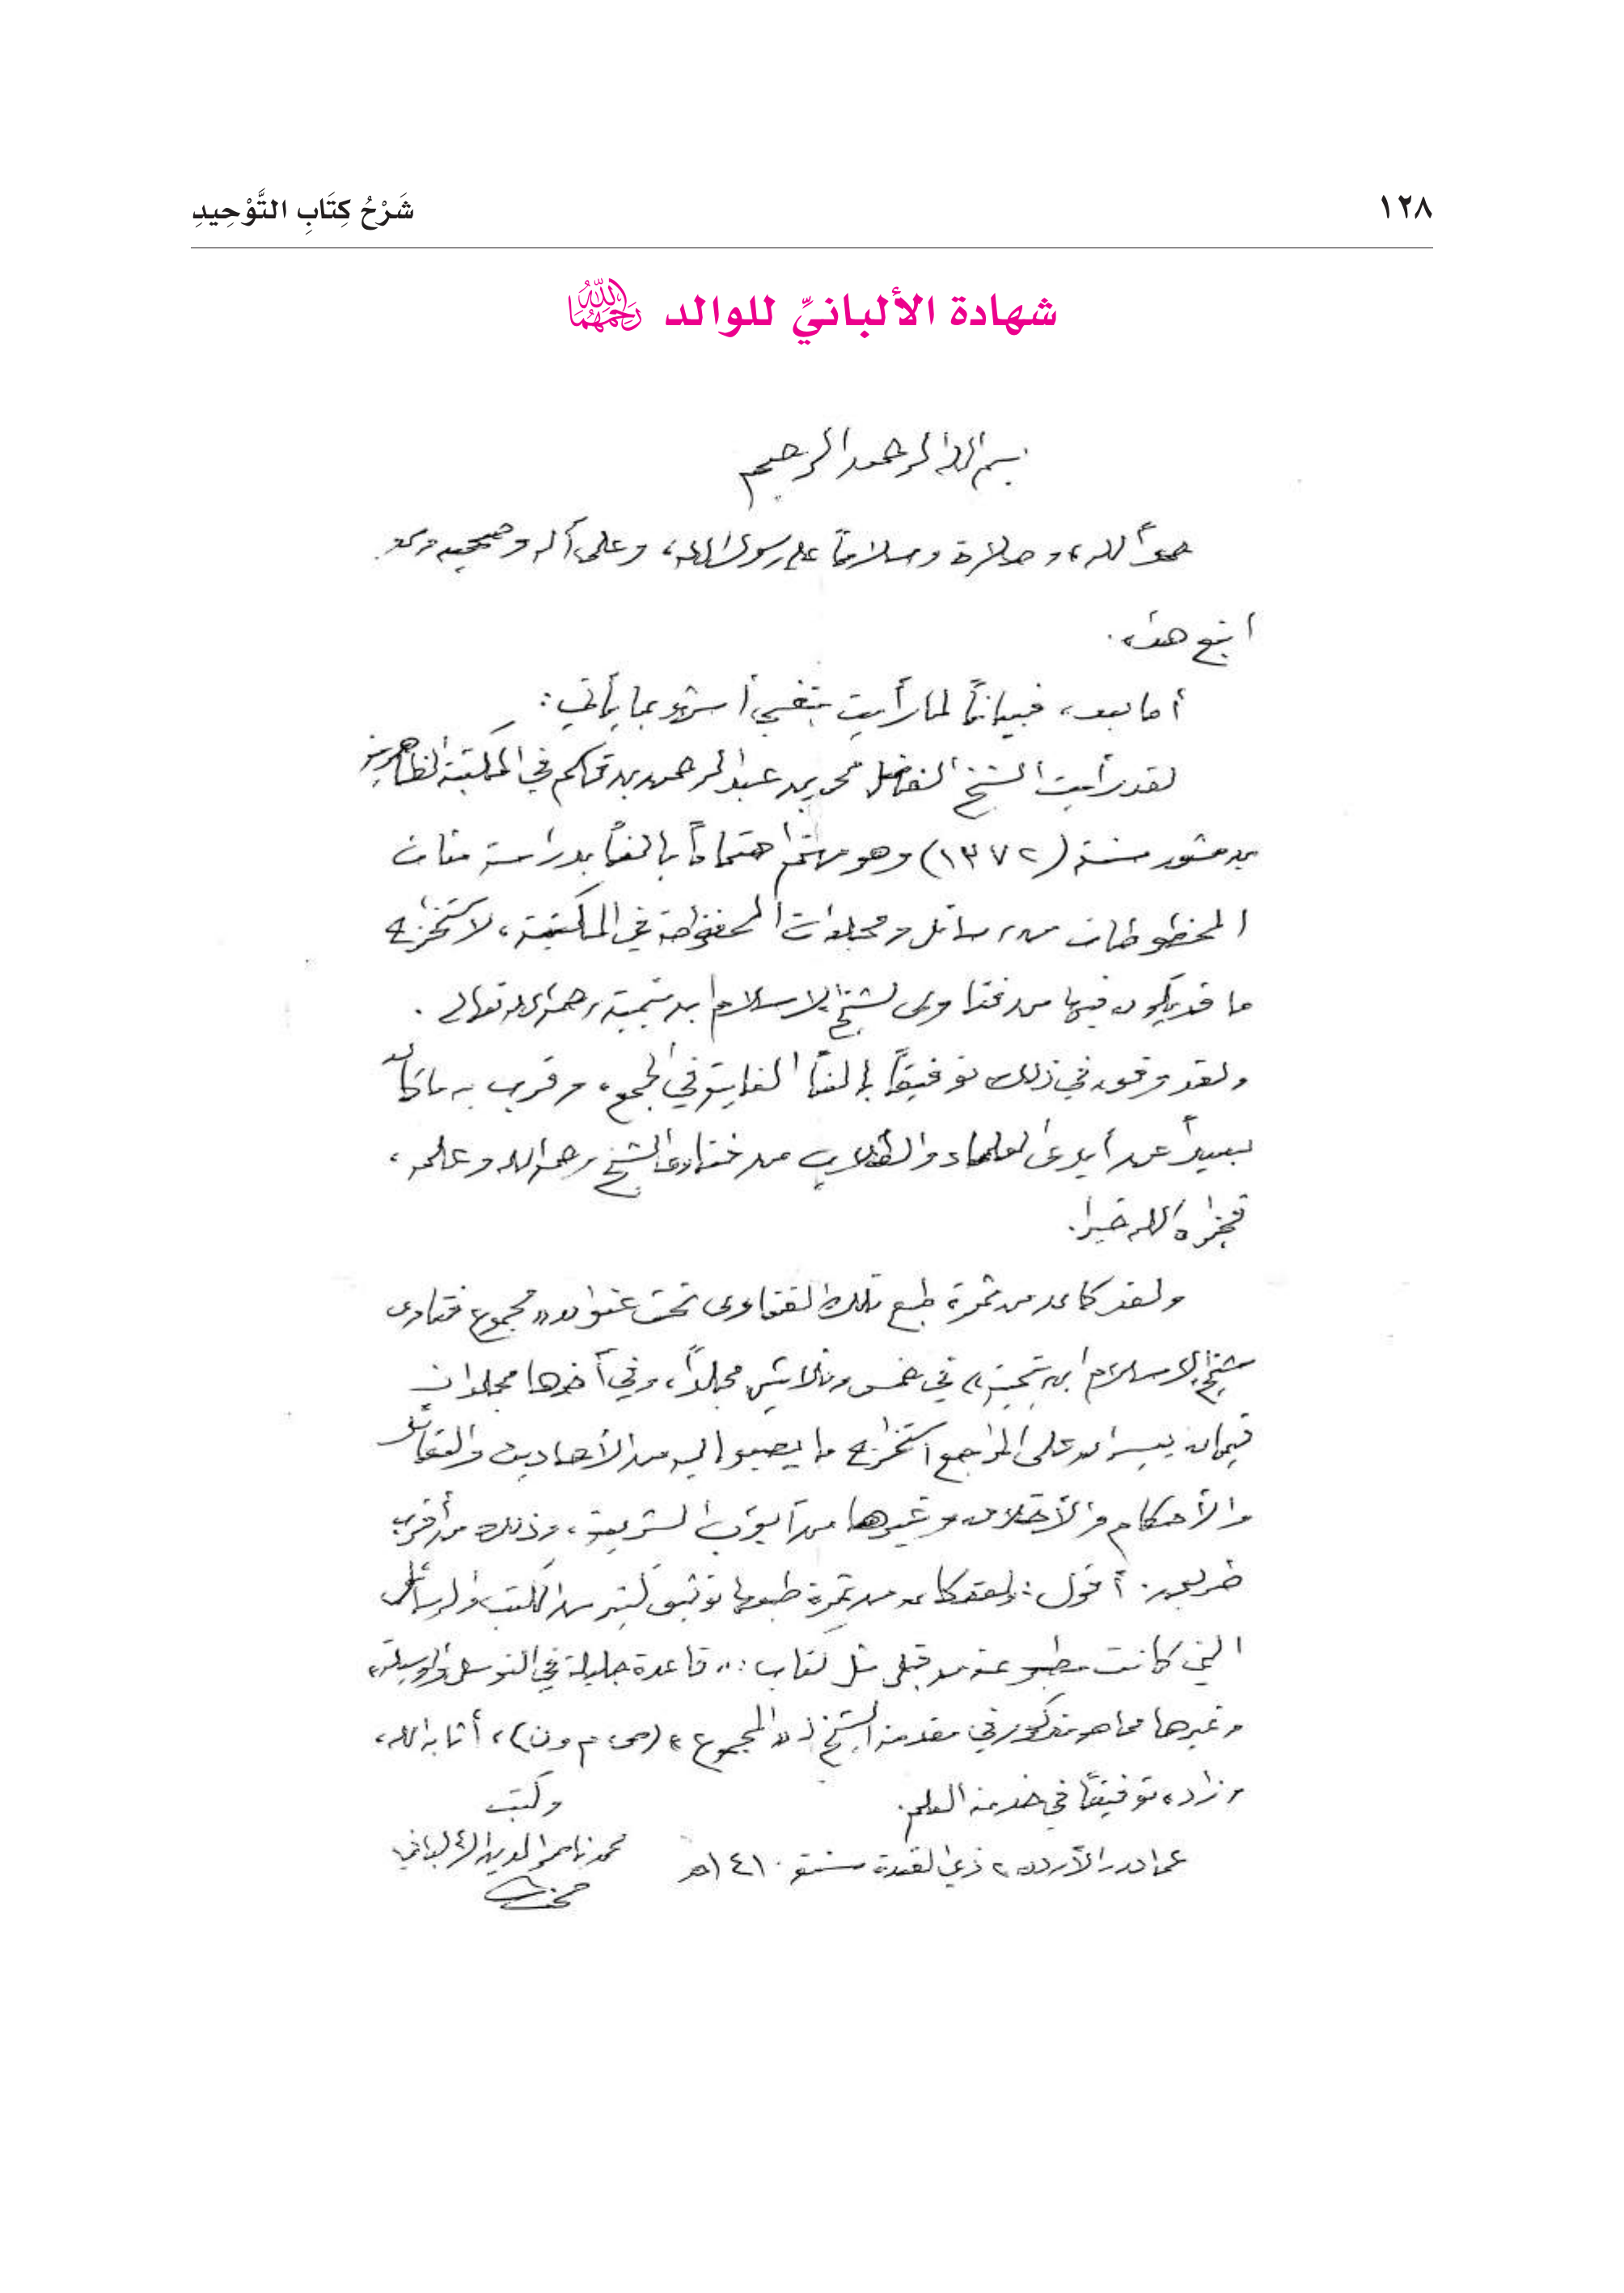 ١٢٨
شَرْحُ كِتَابِ التَّوْحِيدِ
شهادة الألبانيِّ للوالد رَحِمَهُمَا اللَّهُ
بسم الله الرحمن الرحيم
حمداً لله، وصلاة وسلاماً على رسول الله، وعلى آله وصحبه ومن
اتبع هداه.
أما بعد، فبياناً لما رأيت بنفسي أشهد بما يأتي:
لقد رأيت الشيخ الفاضل محمد بن عبد الرحمن بن قاسم في المكتبة الظاهرية
بدمشق سنة (١٣٧٢) وهو مهتم اهتماماً بالغاً بدراسة مئات
المخطوطات من رسائل ومجلدات المحفوظة في المكتبة، لاستخراج
ما قد يكون فيها من فتاوى لشيخ الإسلام ابن تيمية رحمه الله تعالى.
ولقد وفق في ذلك توفيقاً بالغاً الغاية في الجمع، وقرب به ما كان
بعيداً عن أيدي العلماء والطلاب من فتاوى الشيخ رحمه الله وعلمه،
فجزاه الله خيرا.
ولقد كان من ثمرة طبع تلك الفتاوى تحت عنوان «مجموع فتاوى
شيخ الإسلام ابن تيمية» في خمس وثلاثين مجلداً، وفي آخرها مجلدان
قيمان ييسران على المراجع استخراج ما يصبو إليه من الأحاديث والعقائد
والأحكام والأخلاق وغيرها من أبواب الشريعة، وذلك من أقرب
طريق. أقول: ولقد كان من ثمرة طبعها توثيق كثير من الكتب والرسائل
التي كانت مطبوعة من قبل مثل كتاب: «قاعدة جليلة في التوسل والوسيلة»
وغيرها مما هو مذكور في مقدمة الشيخ لـ «المجموع» (ص م ون)، أثابه الله،
وزاده توفيقاً في خدمة العلم.
وكتب
عمان الأردن، ذي القعدة سنة ١٤١٠هـ
محمد ناصر الدين الألباني